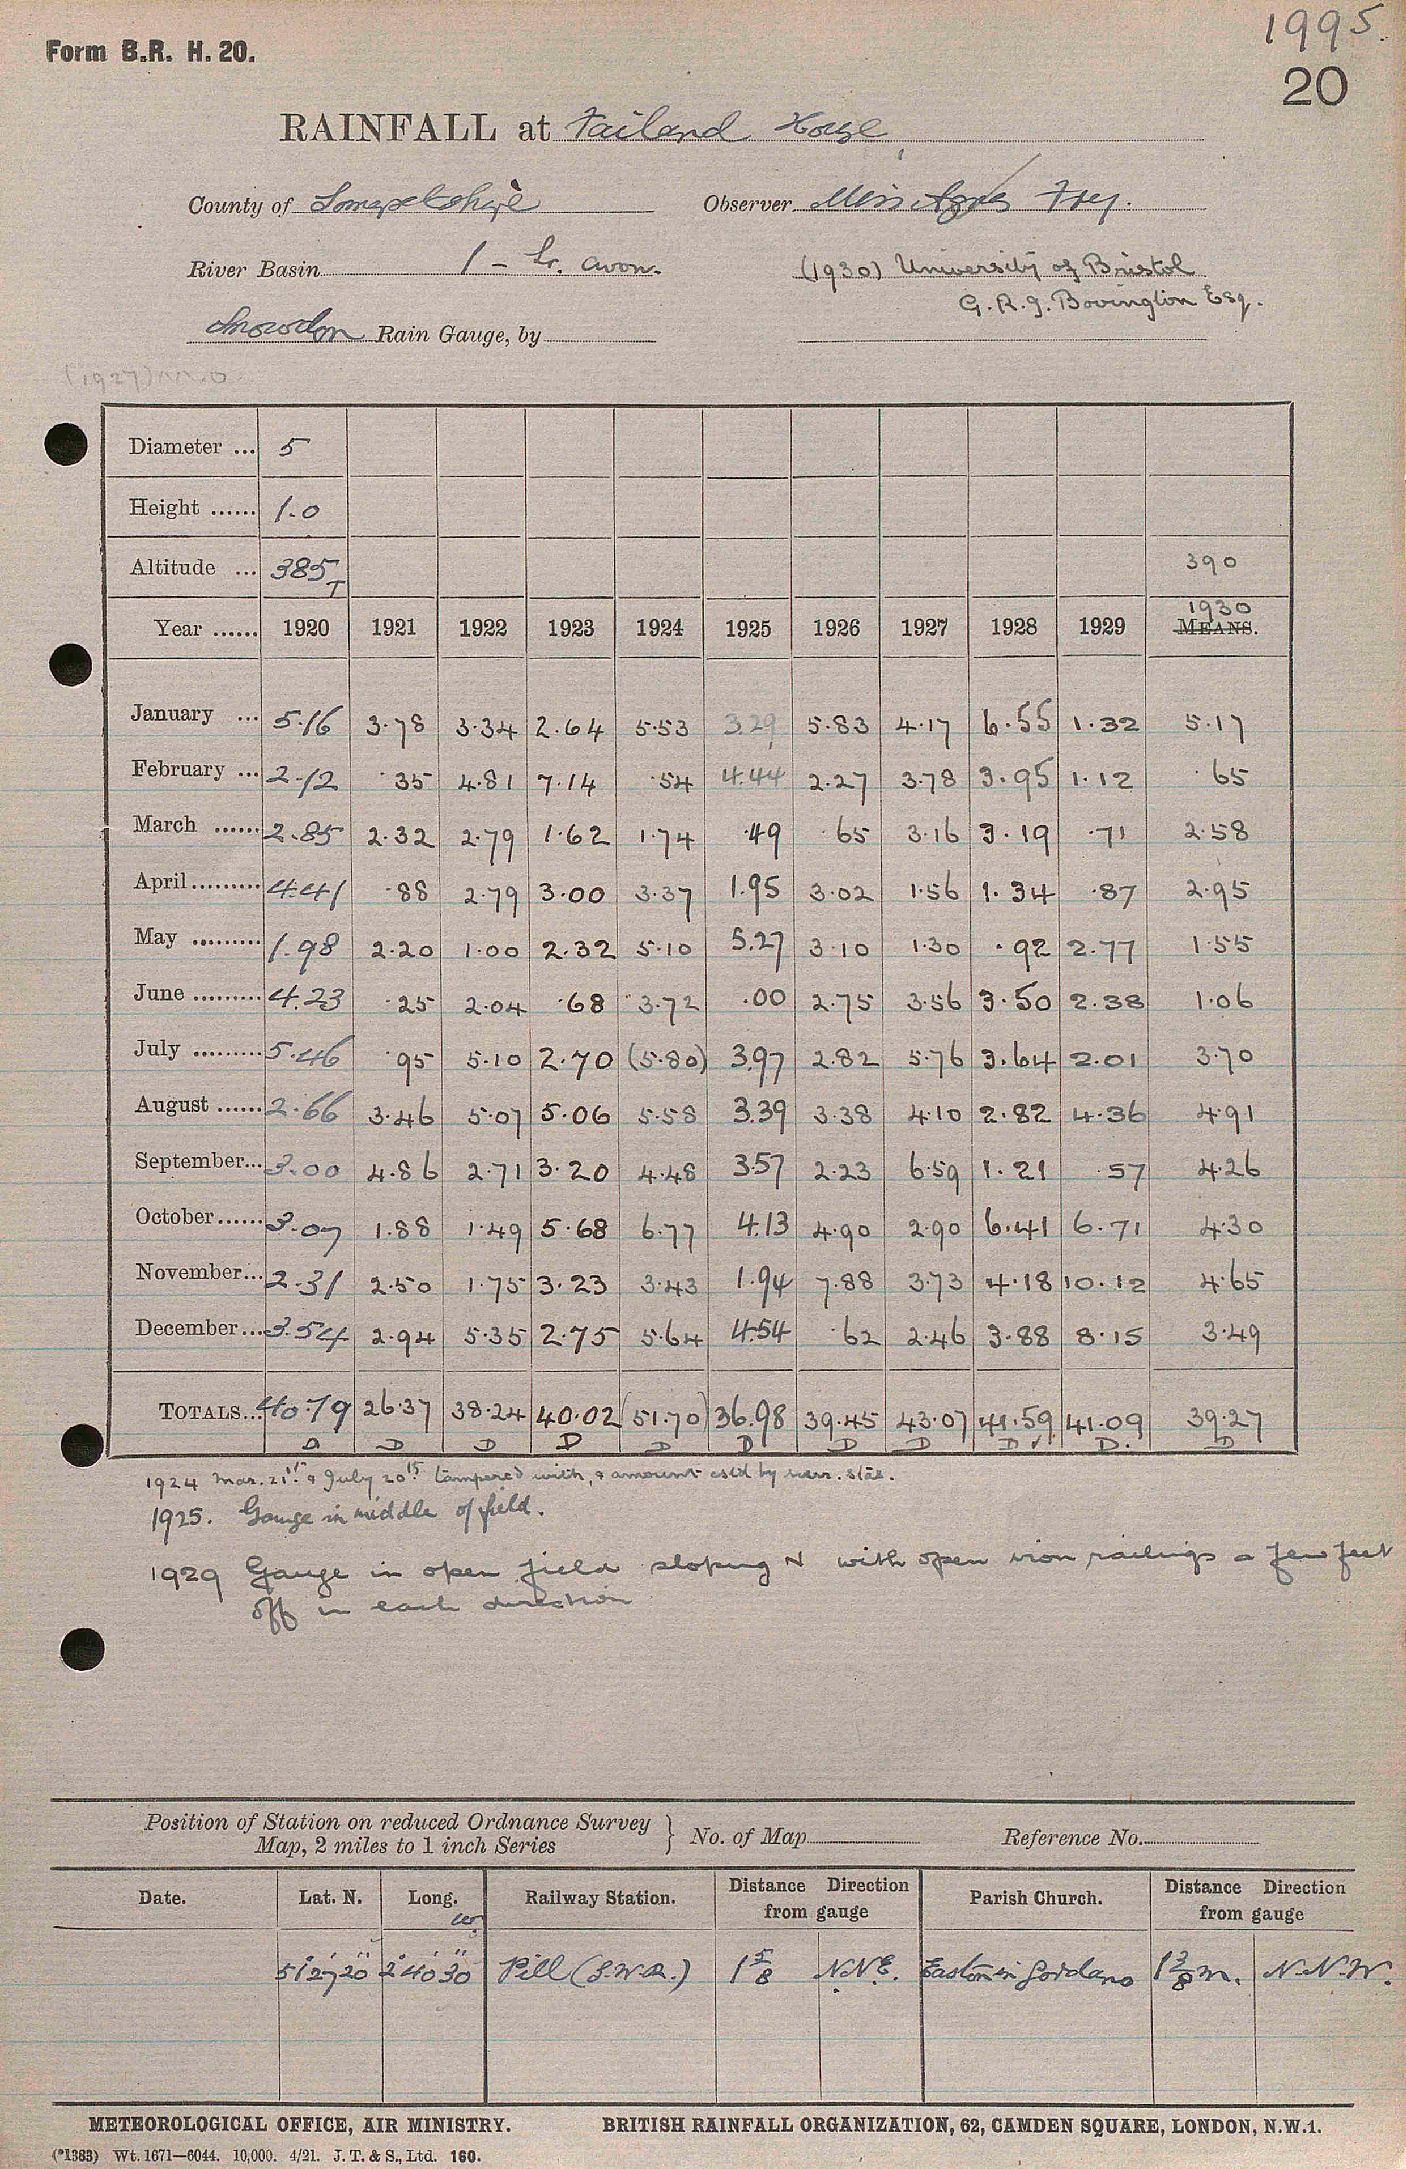 1995.
Form B.R. H. 20.
20
RAINFALL at Failand House
County of Somersetshire Observer Miss Agnes Fry.
River Basin 1 - Lr. Avon. (1930) University of Bristol
G. R. J. Bovington Esq.
Snowdon Rain Gauge, by
(1927) M.O
Diameter ... 5
Height ...... 1.0
Altitude ... 385 T 390
Year ...... 1920 1921 1922 1923 1924 1925 1926 1927 1928 1929 1930 MEANS.
January ... 5.16 3.78 3.34 2.64 5.53 3.29 5.83 4.17 6.55 1.32 5.17
February ... 2.12 .35 4.81 7.14 .54 4.44 2.27 3.78 3.95 1.12 .65
March ...... 2.85 2.32 2.79 1.62 1.74 .49 .65 3.16 3.19 .71 2.58
April ......... 4.41 .88 2.79 3.00 3.37 1.95 3.02 1.56 1.34 .87 2.95
May ......... 1.98 2.20 1.00 2.32 5.10 5.27 3.10 1.30 .92 2.77 1.55
June ......... 4.23 .25 2.04 .68 3.72 .00 2.75 3.56 3.50 2.38 1.06
July ......... 5.46 .95 5.10 2.70 (5.80) 3.97 2.82 5.76 3.64 2.01 3.70
August ...... 2.66 3.46 5.07 5.06 5.58 3.39 3.38 4.10 2.82 4.36 4.91
September... 3.00 4.86 2.71 3.20 4.48 3.57 2.23 6.59 1.21 .57 4.26
October...... 3.07 1.88 1.49 5.68 6.77 4.13 4.90 2.90 6.41 6.71 4.30
November... 2.31 2.50 1.75 3.23 3.43 1.94 7.88 3.73 4.18 10.12 4.65
December... 3.54 2.94 5.35 2.75 5.64 4.54 .62 2.46 3.88 8.15 3.49
TOTALS... 40.79 26.37 38.24 40.02 (51.70) 36.98 39.45 43.07 41.59 41.09 39.27
D D D D D D D D D ✓ D. D
1924 Mar. 21st & July 20th tampered with, & amount estd by surr. stas.
1925. Gauge in middle of field.
1929 Gauge in open field sloping N with open iron railings a few feet
off in each direction
Position of Station on reduced Ordnance Survey
Map, 2 miles to 1 inch Series } No. of Map Reference No.
Date. Lat. N. Long. W. Railway Station. Distance Direction from gauge Parish Church. Distance Direction from gauge
51° 27' 20" 2° 40' 30" Pill (G.W.R.) 1 5/8 N.N.E. Easton in Gordano 1 3/8 m. N.N.W.
METEOROLOGICAL OFFICE, AIR MINISTRY. BRITISH RAINFALL ORGANIZATION, 62, CAMDEN SQUARE, LONDON, N.W.1.
(*1383) Wt. 1671—6044. 10,000. 4/21. J. T. & S., Ltd. 160.